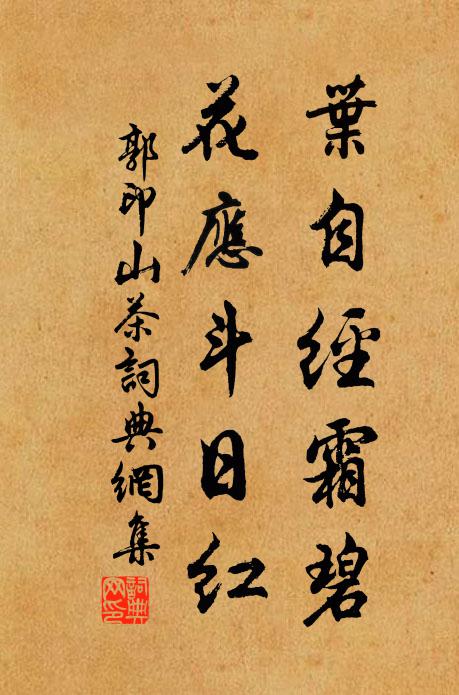 葉自經霜碧
花應斗日红
郭印山茶詞典網集
詞典网印